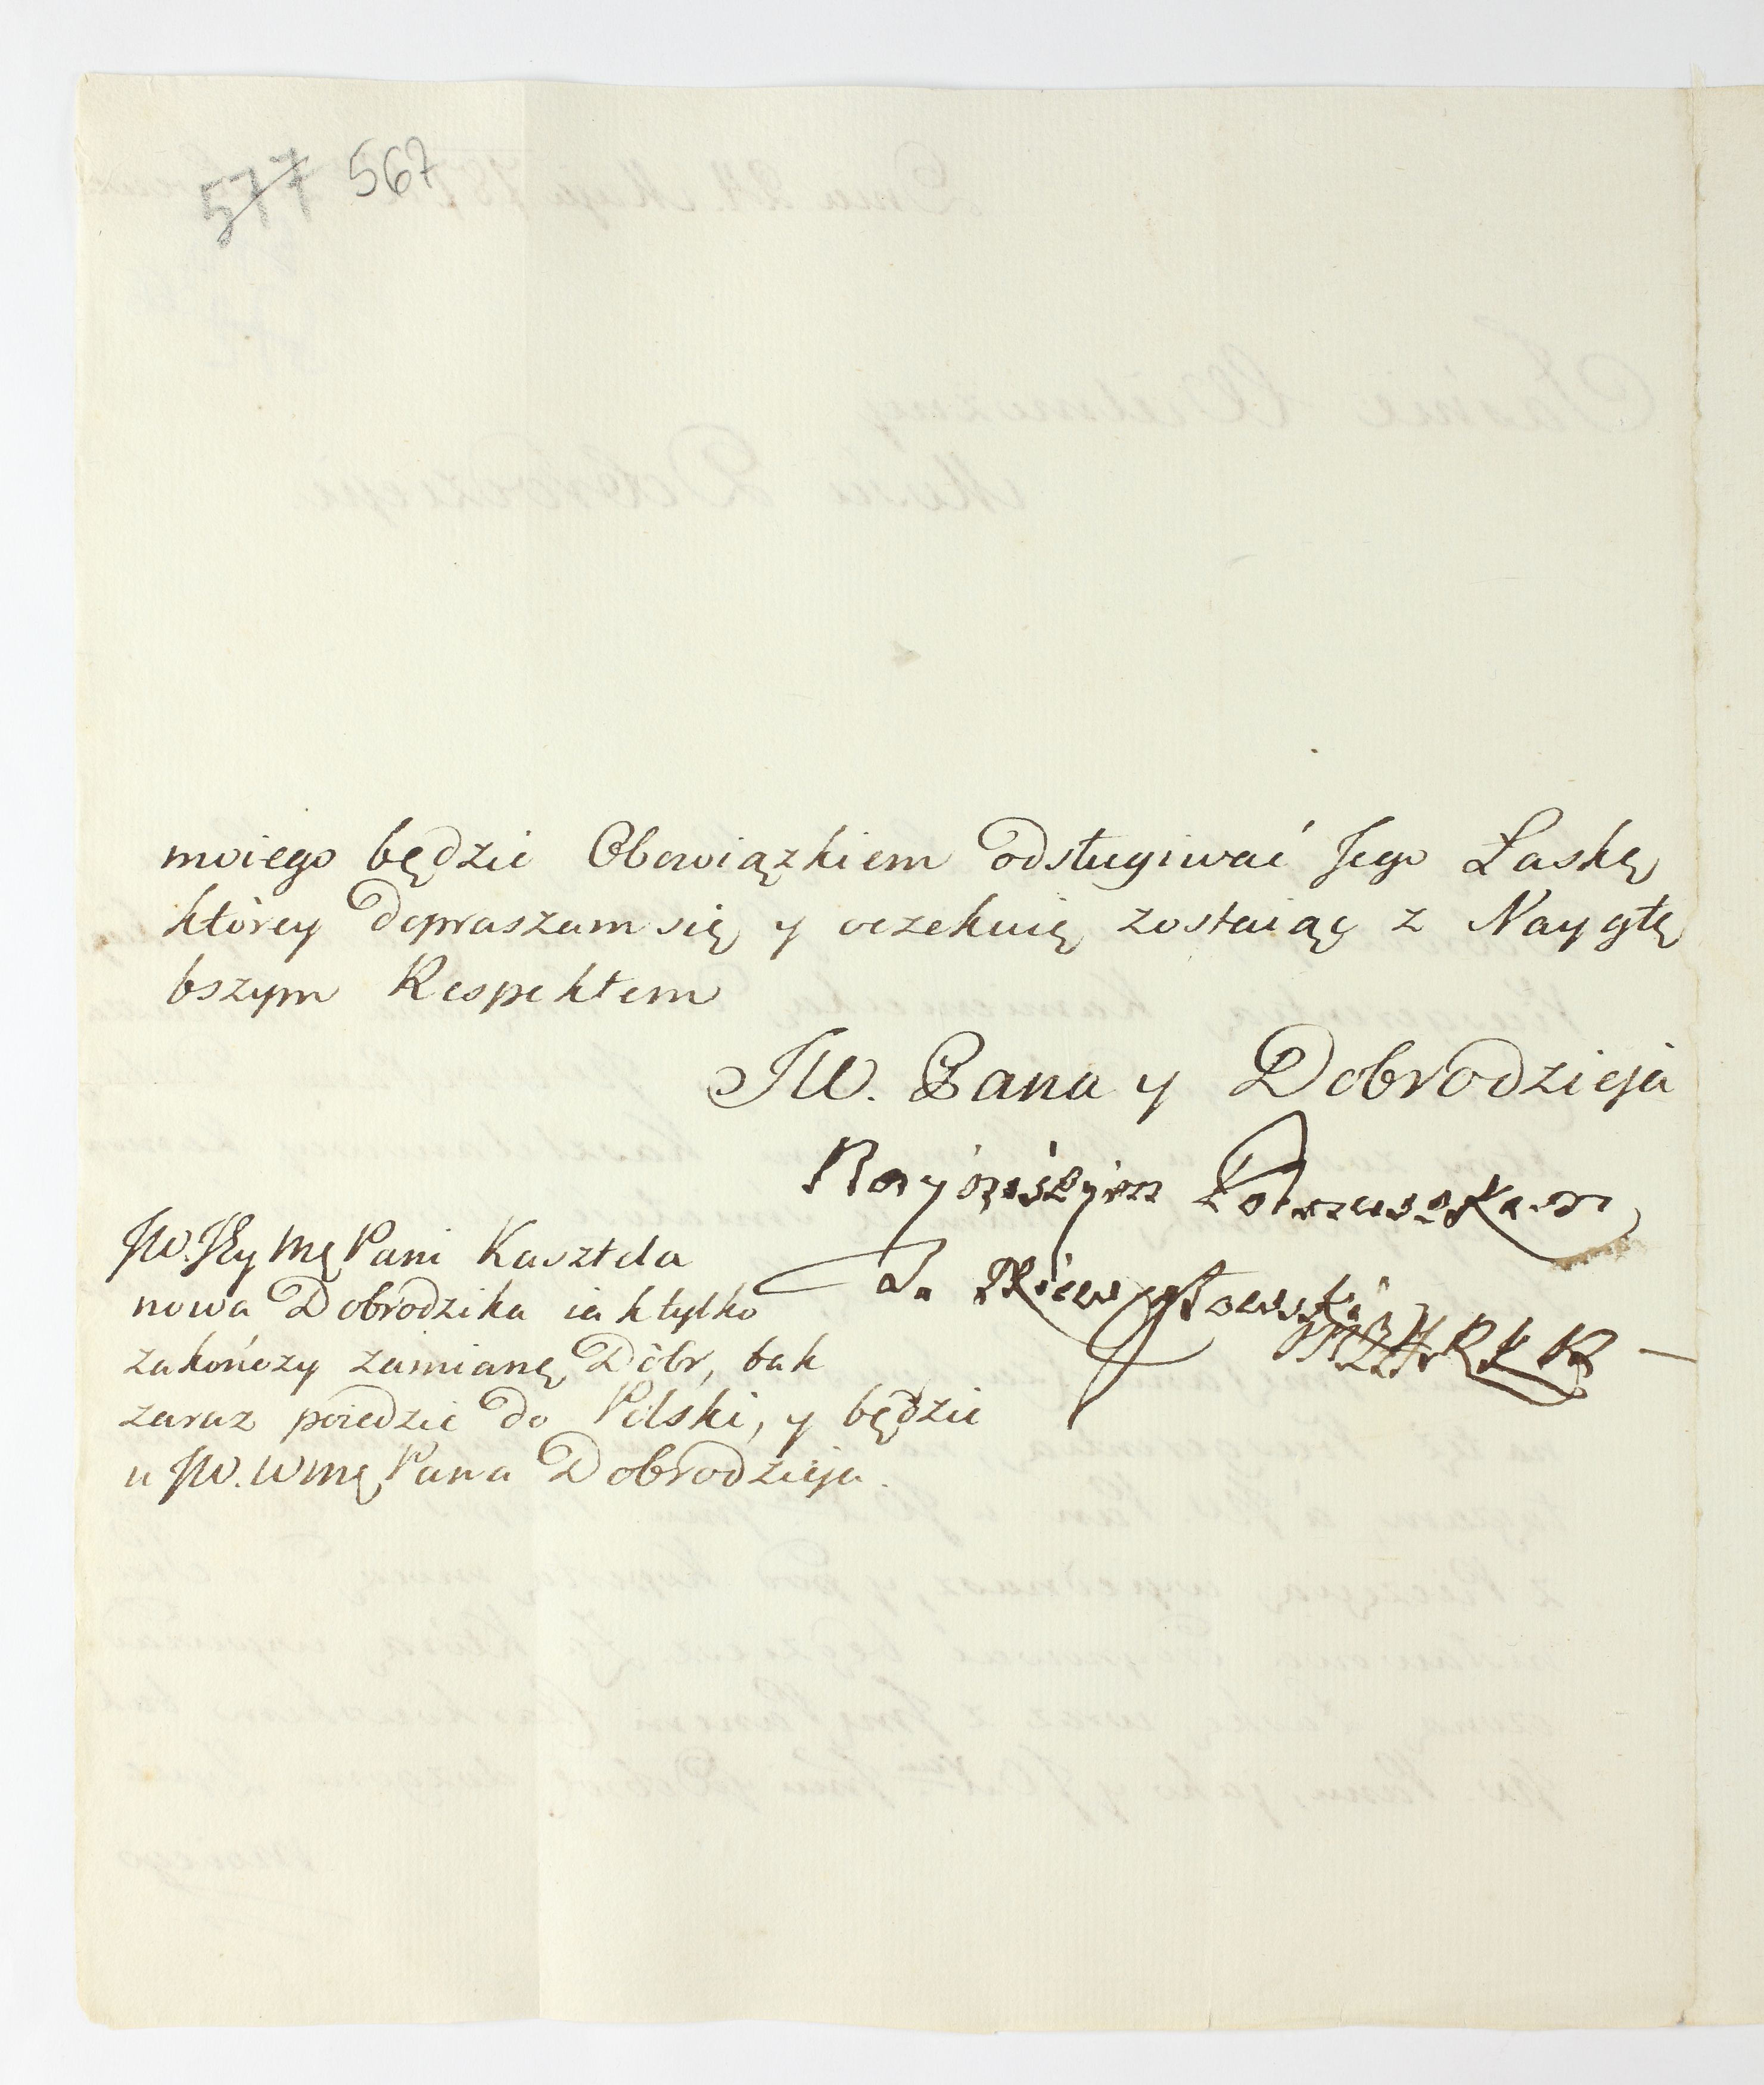 577 567
moiego będzie Obowiązkiem odsługiwać Jego Łaskę
którey dopraszam się y oczekuię zostaiąc z Naygłę
bszym Respektem
JW. Pana y Dobrodzieja
Nayniższym
JW. JEy Mę Pani Kasztela
nowa Dobrodzika iak tylko
zakończy zamianę Dóbr, tak
zaraz poiedzie do Polski, y będzie
u JW. WMę Pana Dobrodzieja.